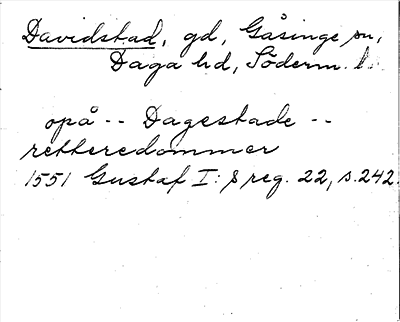 Davidstad, gd, Gåsinge sn,
Daga hd, Söderm. l.
opå -- Dagestade --
retteredommer
1551 Gustaf I:s reg. 22, s.242.